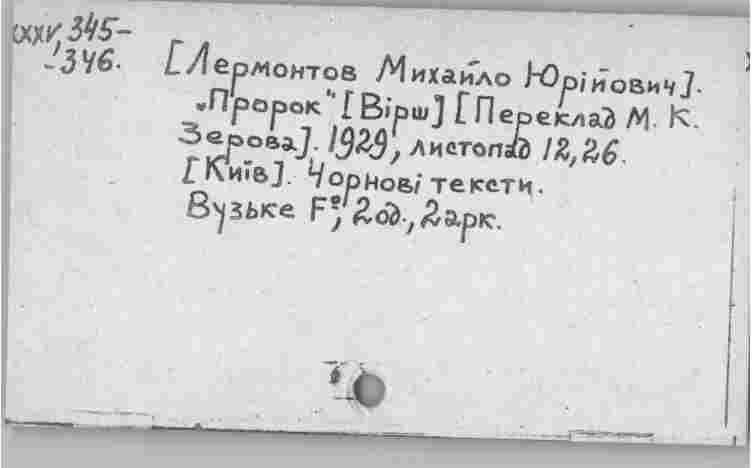 XXXV, 345-
-346.
[Лермонтов Михайло Юрійович].
„Пророк" [Вірш] [Переклад М. К.
Зерова]. 1929, листопад 12, 26.
[Київ]. Чорнові тексти.
Вузьке F°, 2 од., 2 арк.